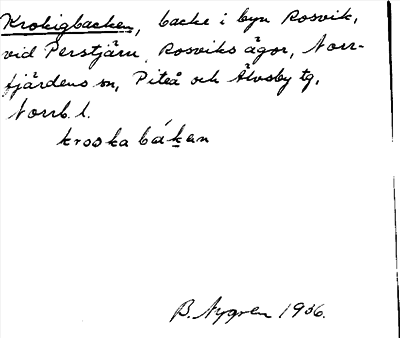 Krokigbacken, backe i byn Rosvik,
vid Perstjärn, Rosviks ägor, Norr-
fjärdens sn, Piteå och Älvsby tg,
Norrb. l.
krooka båkan
B. Nygren 1936.